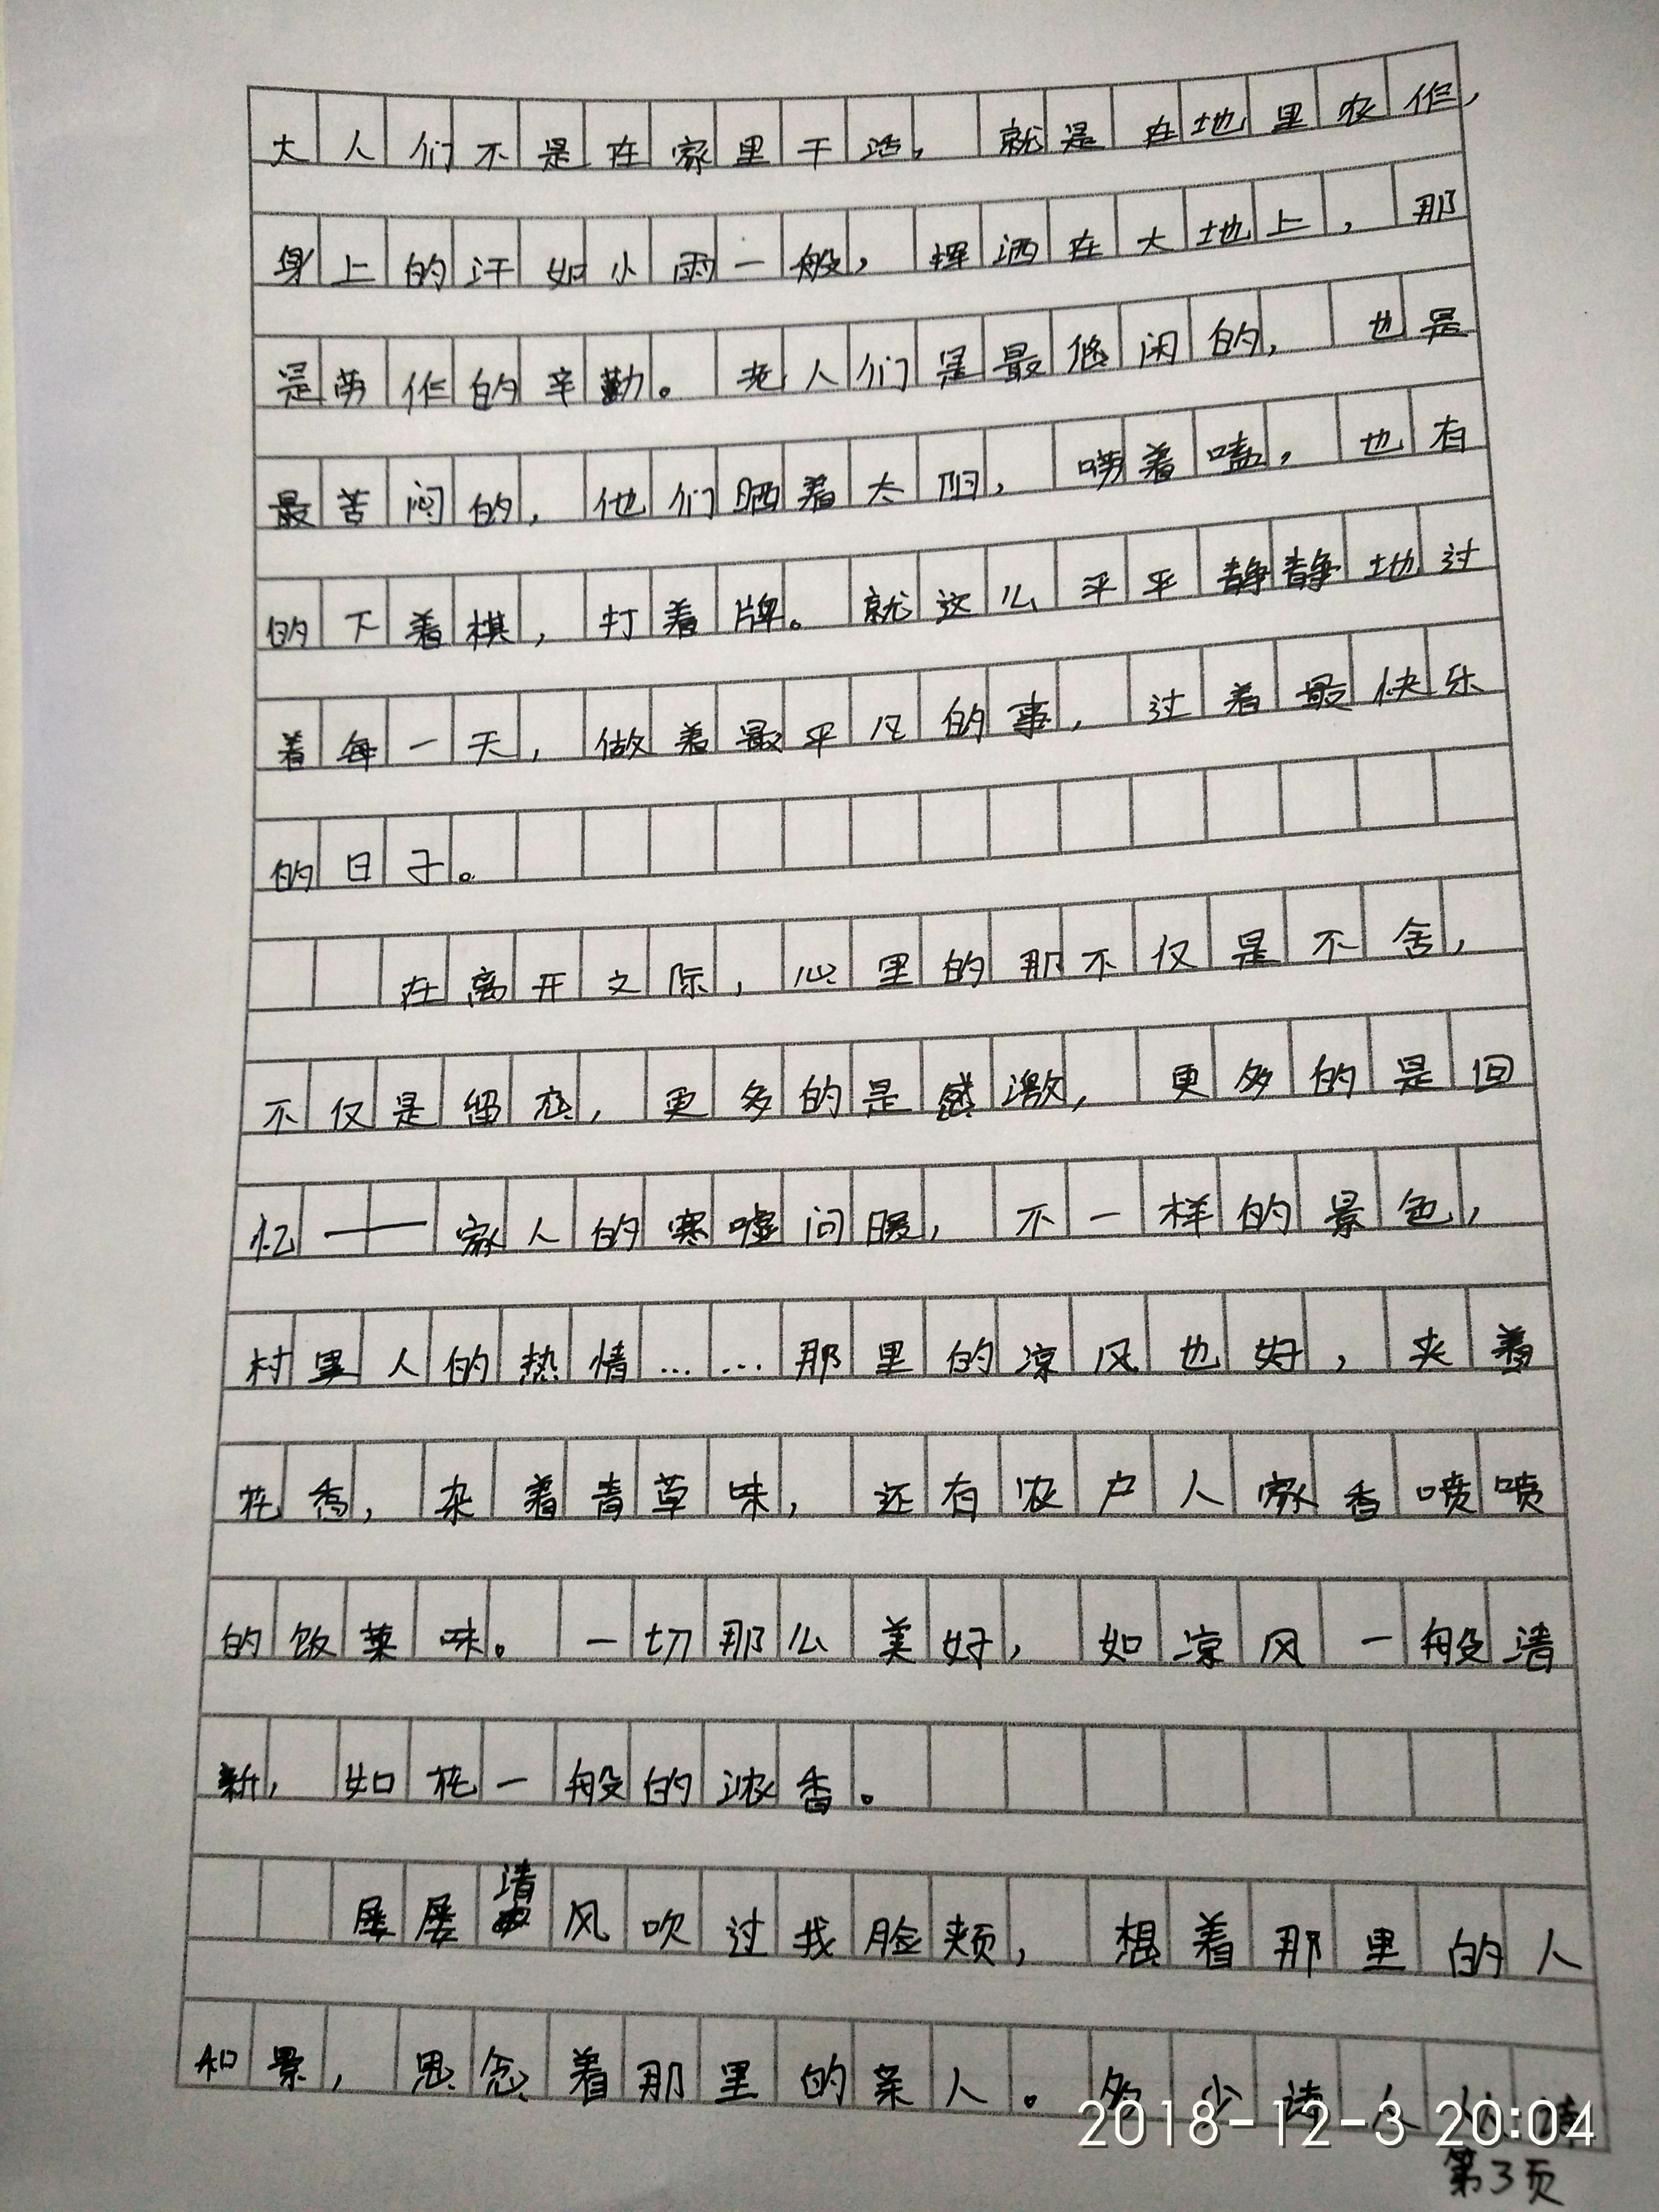 大人们不是在家里干活，就是在地里农作，
身上的汗如小雨一般，挥洒在大地上，那
是劳作的辛勤。老人们是最悠闲的，也是
最苦闷的，他们晒着太阳，唠着嗑，也有
的下着棋，打着牌。就这么平平静静地过
着每一天，做着最平凡的事，过着最快乐
的日子。
在离开之际，心里的那不仅是不舍，
不仅是留恋，更多的是感激，更多的是回
忆——家人的寒嘘问暖，不一样的景色，
村里人的热情……那里的凉风也好，夹着
花香，杂着青草味，还有农户人家香喷喷
的饭菜味。一切那么美好，如凉风一般清
新，如花一般的浓香。
屡屡清风吹过我脸颊，想着那里的人
和景，思念着那里的亲人。多少诗人
2018-12-3 20:04
第3页